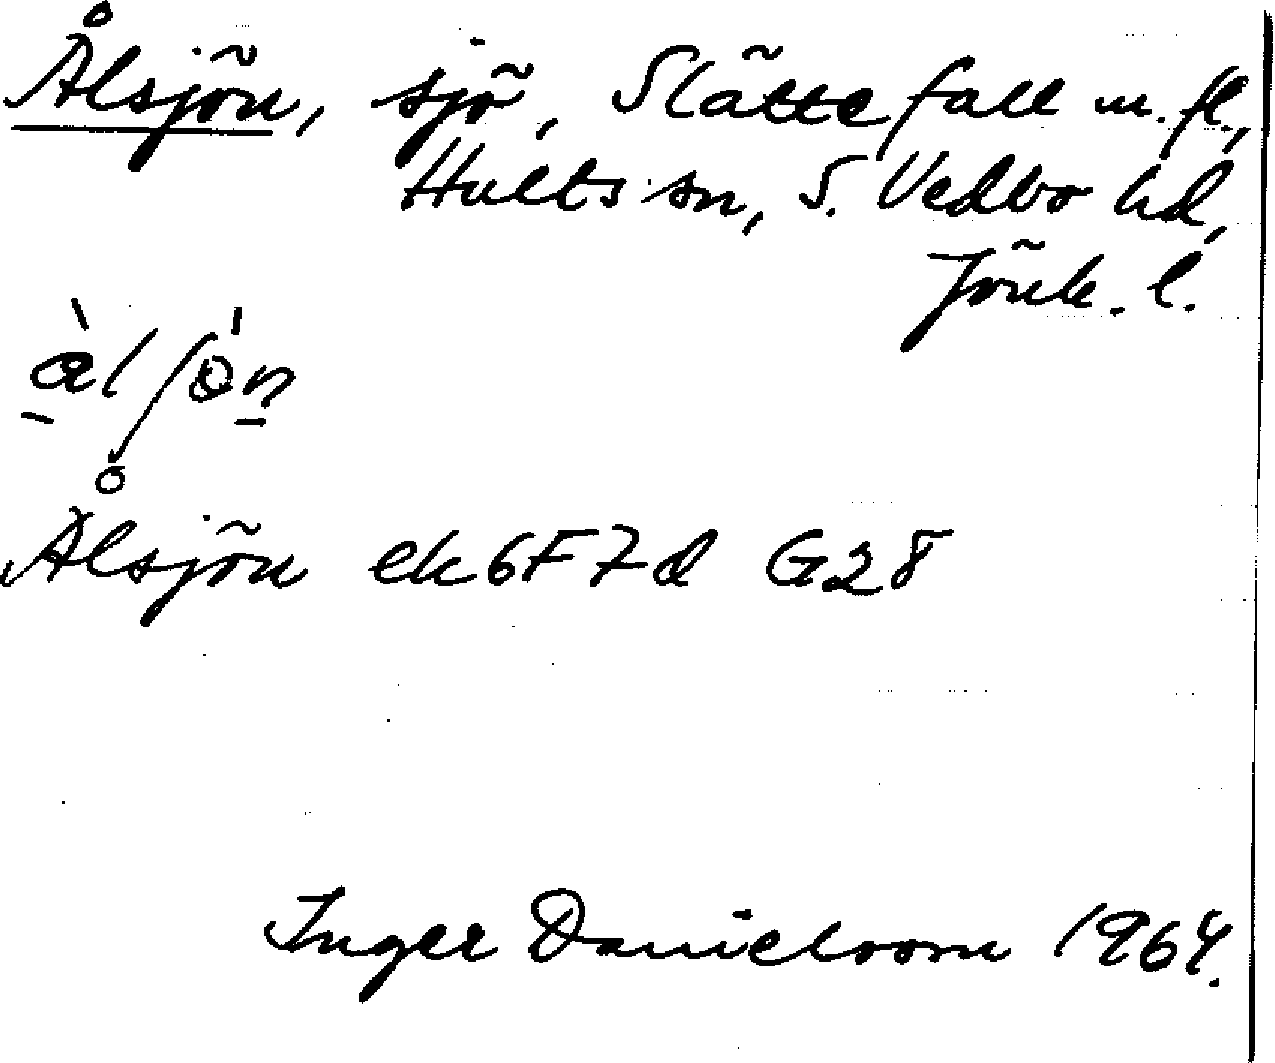 Ålsjön, sjö, Slättefall m.fl.,
Hults sn, S. Vedbo hd,
Jönk. l.
Ålsjön ek6F7d G28
Inger Danielsson 1964.